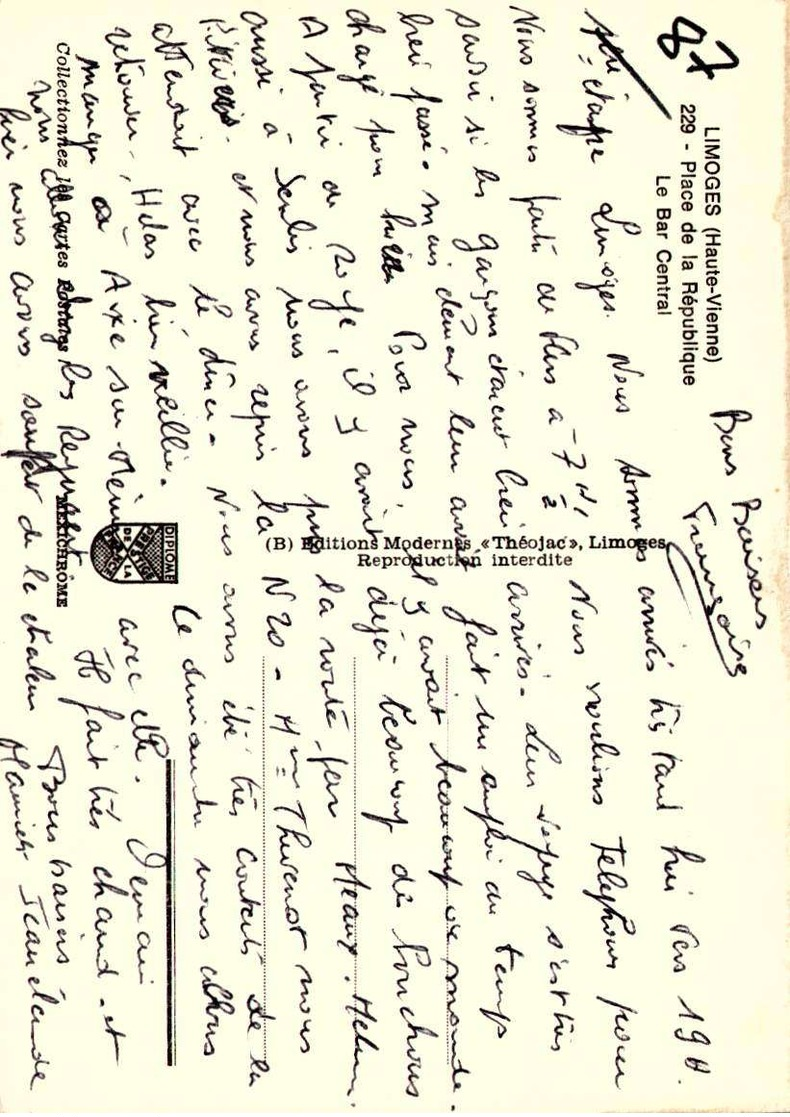 87
LIMOGES (Haute-Vienne)
229 - Place de la République
Le Bar Central
Bons Baisers
Françoise
étape Limoges. Nous sommes arrivés très tard hier vers 19 H.
Nous sommes partis de à 7 H 1/2 Nous voulions téléphoner pour
savoir si les garçons étaient bien arrivés. Leur voyage s'est très
bien passé. mais fait un emploi du temps
chargé pour Pour nous, il y avait beaucoup de monde.
A partir de Roye, il y avait déjà beaucoup de bouchons
aussi à Senlis nous avons pris la route par Meaux. Melun.
et nous avons repris la N20. Mme Thevenot nous
attendait avec le dîner. Nous avons été très contents de la
retrouver, Hélas bien vieillie. Ce dimanche nous allons
manger à Aixe sur Vienne avec elle. Demain
nous les Il fait très chaud. et
hier nous avons souffert de la chaleur Bons baisers
Jean Claude
Collectionnez les cartes postales
MEXICHROME
DIPLOME
PRESTIGE
DE LA
FRANCE
(B) Editions Modernes «Théojac», Limoges
Reproduction interdite